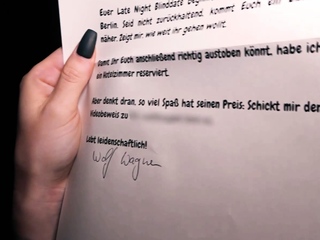 Euer Late Night Blinddate
Berlin. Seid nicht zurückhaltend, kommt Euch ein
näher. Zeigt mir, wie weit ihr gehen wollt.
Damit Ihr Euch anschließend richtig austoben könnt, habe ich
ein Hotelzimmer reserviert.
Aber denkt dran, so viel Spaß hat seinen Preis: Schickt mir den
Videobeweis zu
Lebt leidenschaftlich!
Wolf Wagner